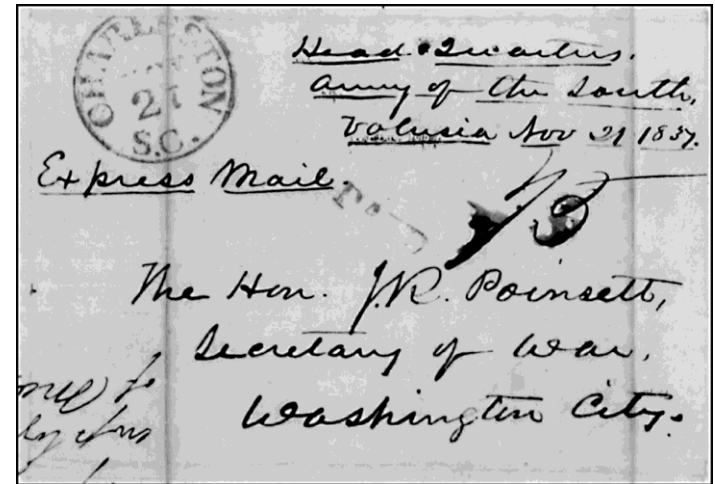 CHARLESTON
NOV
27
S.C.
Head Quarters.
Army of the South,
Volusia Nov 21 1837.
Express Mail.
PAID
The Hon. J.R. Poinsett,
Secretary of War.
Washington City.